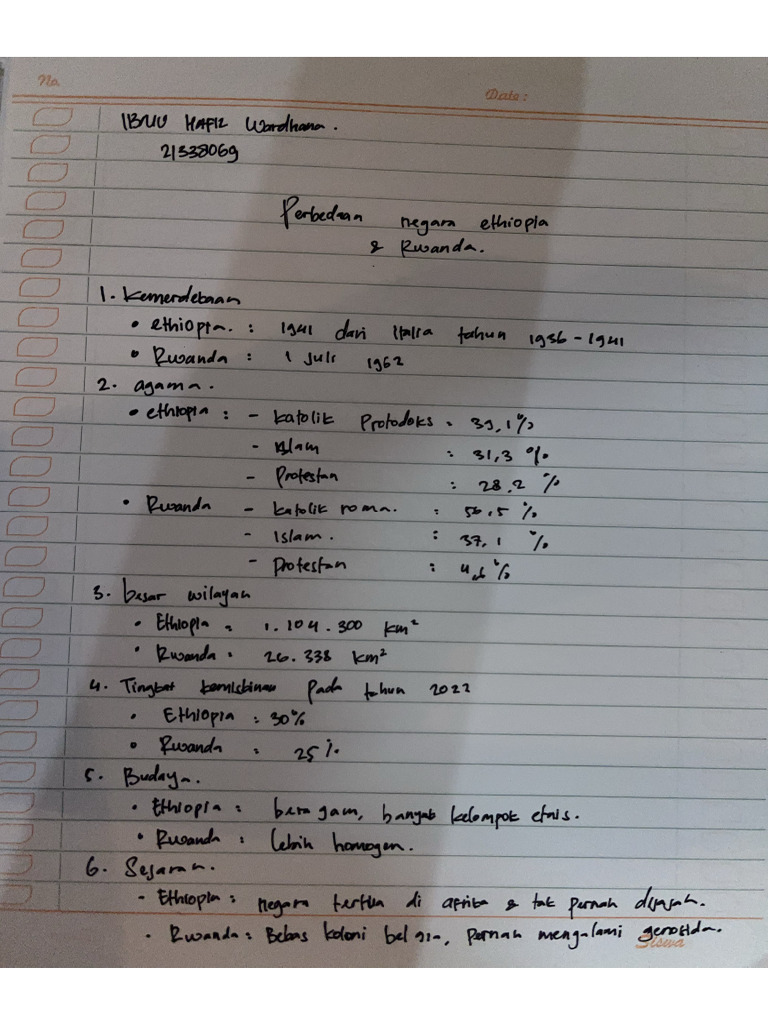 No.
Date:
IBNU HAFIZ Wardhana.
21338069
Perbedaan negara ethiopia
& Rwanda.
1. Kemerdekaan
• ethiopia. : 1941 dari Italia tahun 1936 - 1941
• Rwanda : 1 Juli 1962
2. agama.
• ethiopia : - Katolik Protodoks = 39,1%
- Islam : 31,3 %
- Protestan : 28,2 %
• Rwanda - Katolik roma. : 56,5 %
- Islam. : 37,1 %
- Protestan : 4,6 %
3. besar wilayah
• Ethiopia = 1.104.300 km²
• Rwanda = 26.338 km²
4. Tingkat kemiskinan pada tahun 2022
• Ethiopia : 30%
• Rwanda : 25 %
5. Budaya.
• Ethiopia : beragam, banyak kelompok etnis.
• Rwanda : lebih homogen.
6. Sejarah.
- Ethiopia : negara tertua di afrika & tak pernah dijajah.
• Rwanda : Bebas koloni belgia, pernah mengalami genosida.
Siswa